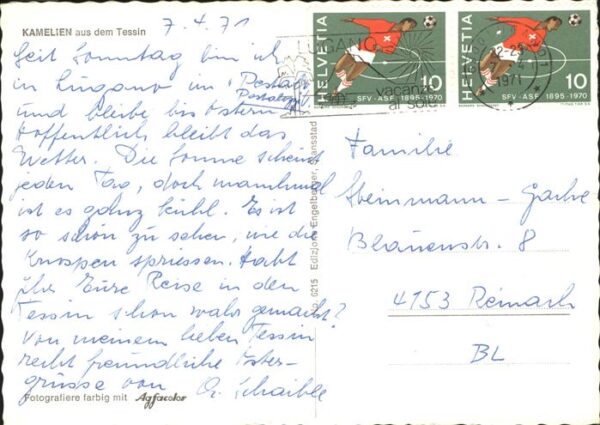 KAMELIEN aus dem Tessin
7.4.71
Seit Sonntag bin ich
in Lugano im "Pestalo
Pestalozzi
und bleibe bis Ostern.
Hoffentlich bleibt das
Wetter. Die Sonne scheint
jeden Tag, doch manchmal
ist es ganz kühl. Es ist
so schön zu sehen, wie die
Knospen spriessen. Habt
ihr Eure Reise in den
Tessin schon wahr gemacht?
Von meinem lieben Tessin
recht freundliche Oster-
grüsse von G. Schaible
Fotografiere farbig mit Agfacolor
6215 Edizione Engelberger, Stansstad
HELVETIA
10
SFV-ASF 1895-1970
HELVETIA
10
SFV-ASF 1895-1970
LUGANO
vacanze
di sole
1971
Familie
Steinmann-Garbe
Blauenstr. 8
4153 Reinach
BL